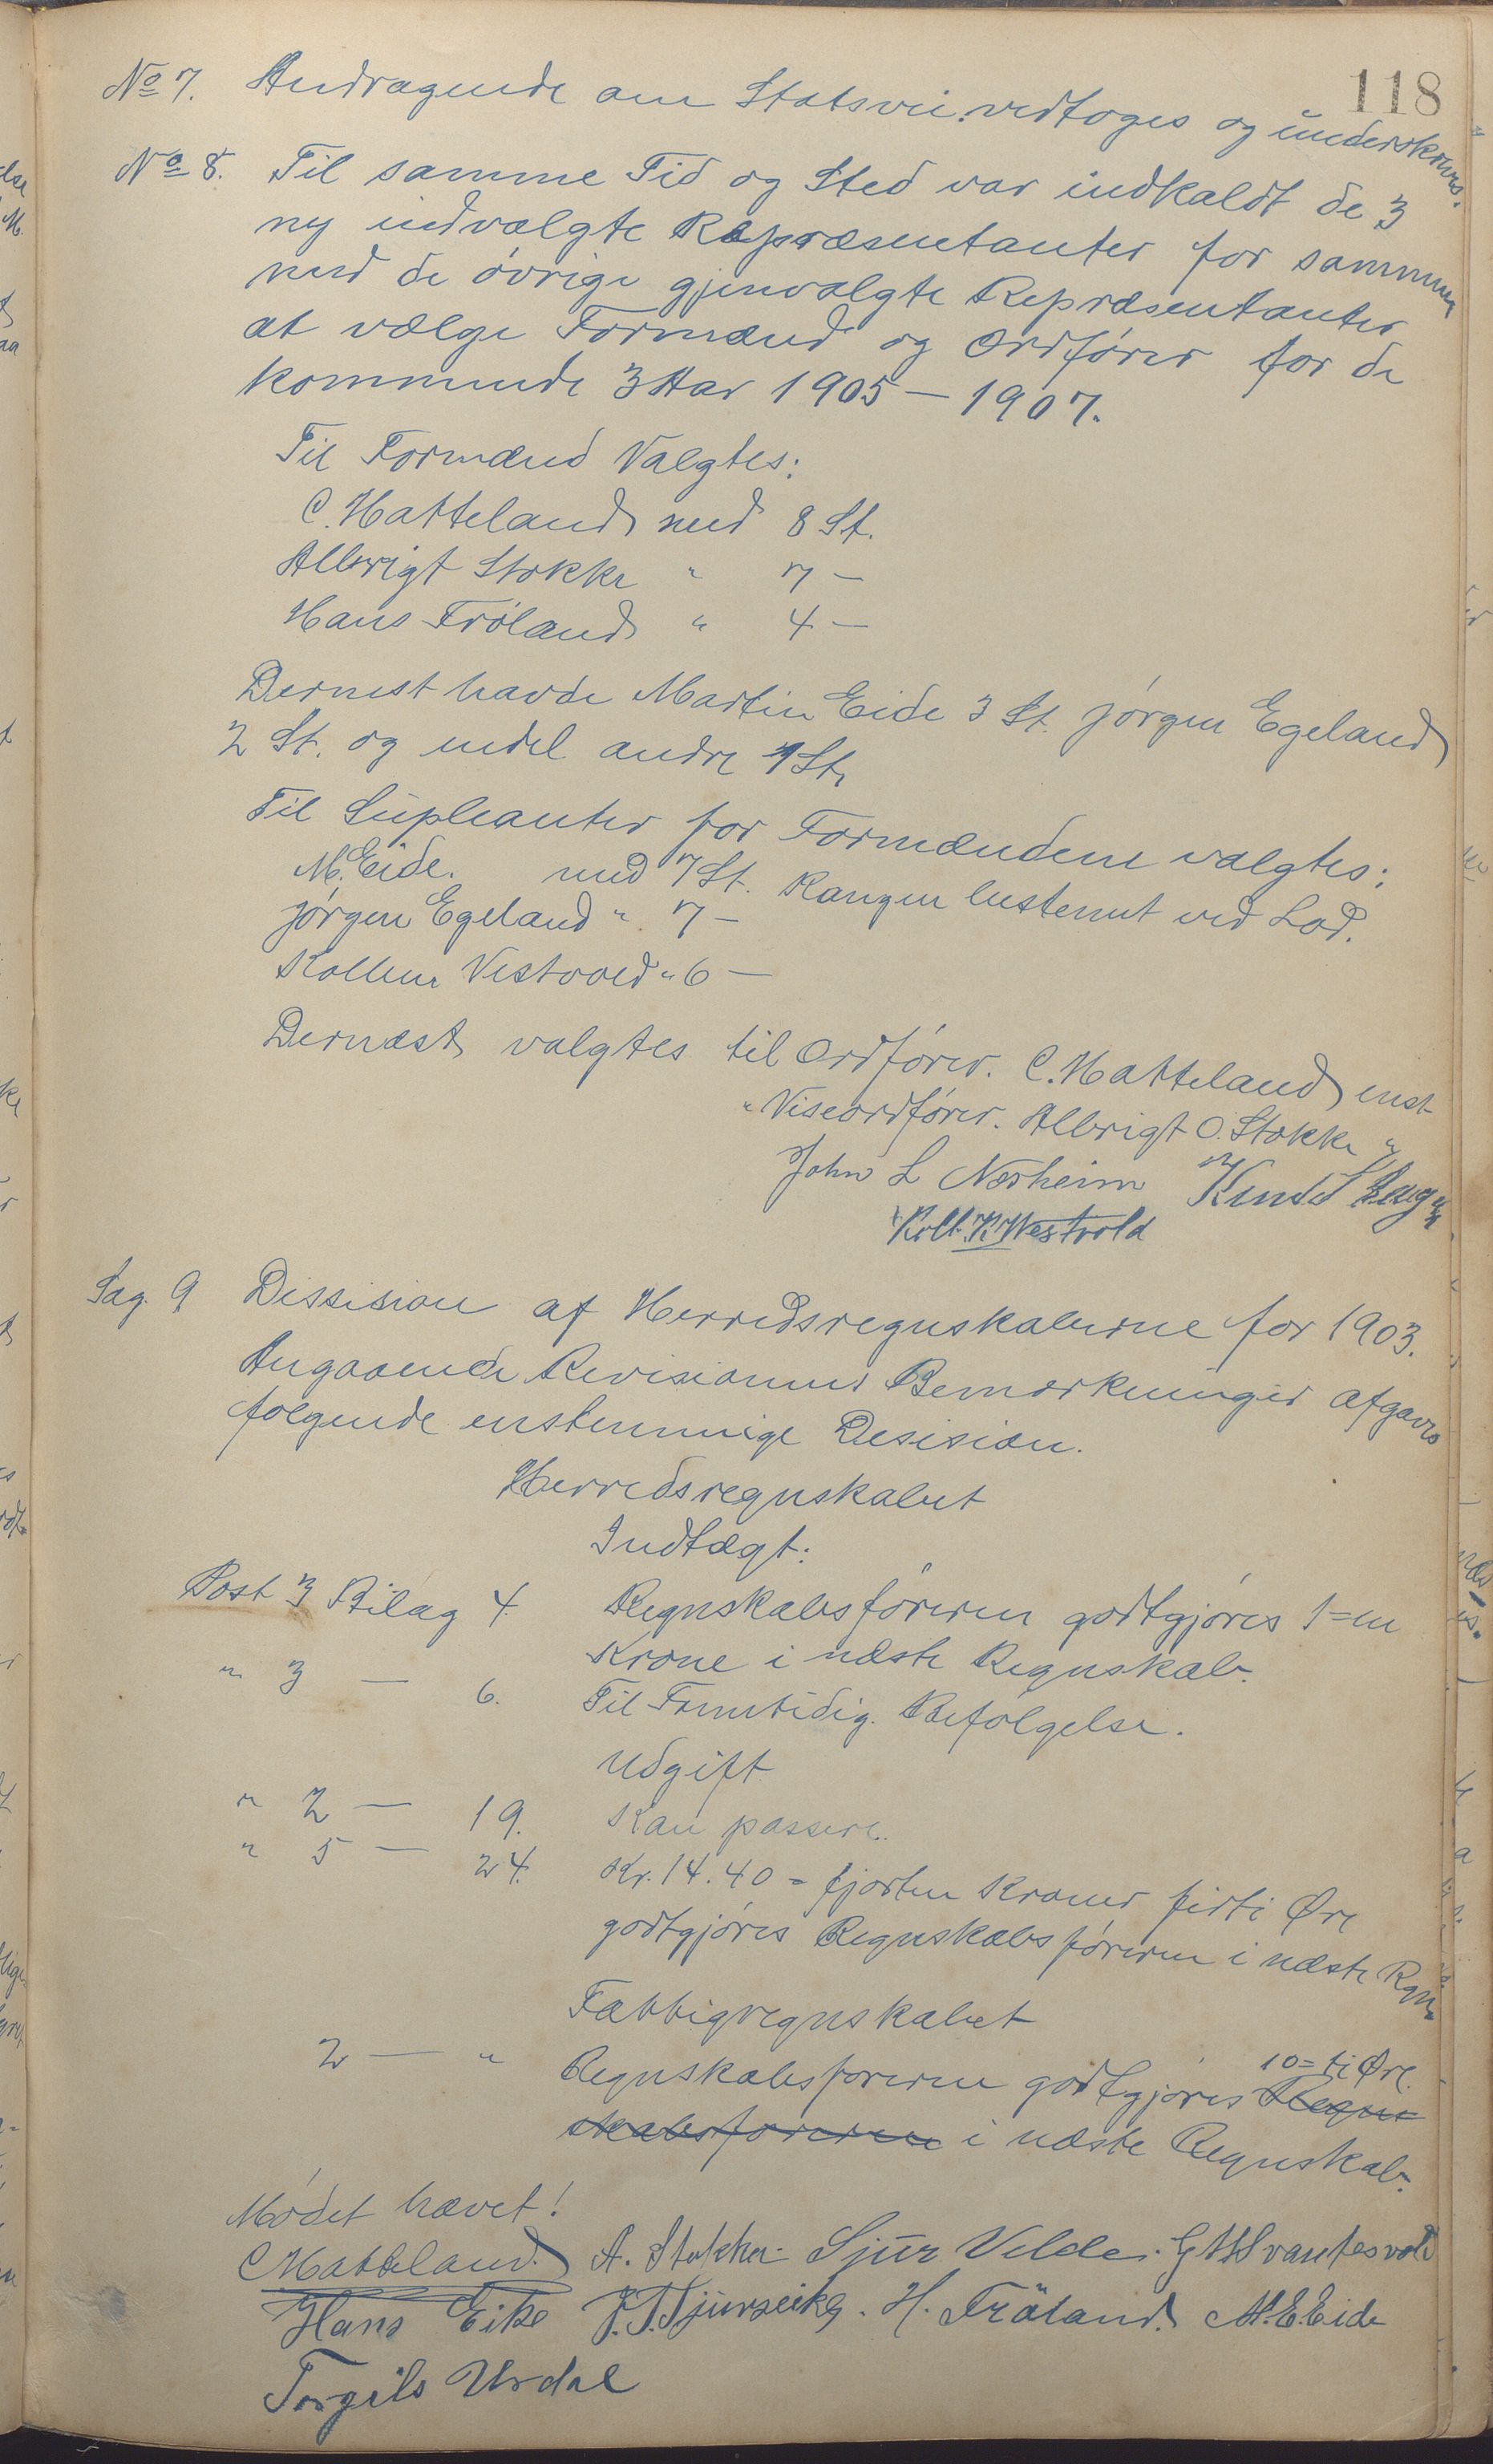 118
No 7. Andragende om Statsvei vedtoges og underskrives.
No 8. Til samme Tid og Sted var indkaldt de 3
ny indvalgte Repræsentanter for sammen
med de óvrige gjenvalgte Repræsentanter
at vælge Formænd og Ordfórer for de
kommende 3 Aar 1905 – 1907.
Til Formænd Valgtes:
C. Hatteland med 8 St.
Albrigt Stokke " 7 –
Hans Fróland " 4 –
Dernest havde Martin Eide 3 St. Jórgen Egeland
2 St. og endel andre 1 St.
Til Supleanter for Formændene valgtes:
M. Eide. med 7 St. Rangen bestemt ved Lod.
Jórgen Egeland " 7 –
Kolben Vestvold " 6 –
Dernæst valgtes til Ordfórer. C. Hatteland enst
" Viseordfórer. Albrigt O. Stokke "
John L Nærheim Knud
Kolb. K. Westvold
Sag. 9 Dissision af Herredsregnskaberne for 1903.
Angaaende Revisionens Bemærkninger afgaves
fólgende enstemmige Desision.
Herredsregnskabet
Indtægt:
Post 3 Bilag 4. Regnskabsfóreren godtgjóres 1=en
Krone i næste Regnskab.
" 3 — 6. Til Fremtidig. Befólgelse.
Udgift
" 2 — 19. Kan passere..
" 5 — 24. Kr. 14.40 = fjorten Kroner firti Øre
godtgjóres Regnskabsfóreren i næste Regn.
Fattigregnskabet
10 = ti Øre.
2 — " Regnskabsforeren godtgjóres Regn=
skabsforeren i næste Regnskab.
Módet hævet!
C Hatteland. A. Stokke. Sjur Velde. G H Svantesvold
Hans Eike J. T. Tjurseike. H. Fröland. M. E. Eide
Torgils Urdal